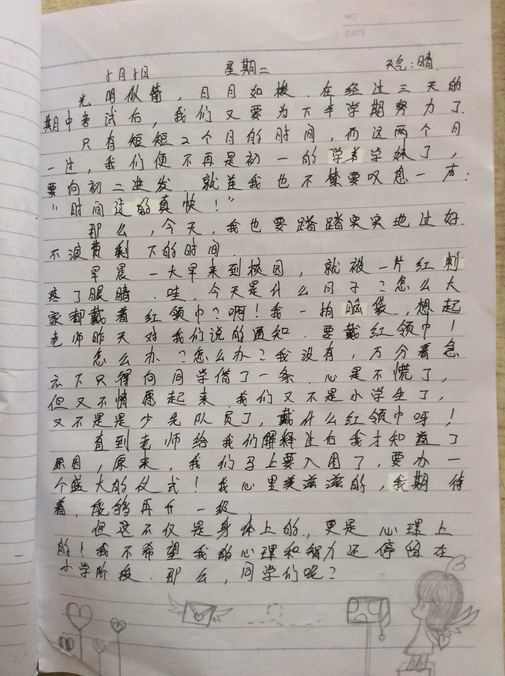 5月8日 星期二 天气:晴
光明似箭，日月如梭.在经过三天的
期中考试后，我们又要为下半学期努力了.
只有短短2个月的时间，而这两个月
一过，我们便不再是初一的学弟学妹了，
要向初二进发 就连我也不禁要叹息一声:
"时间过的真快！"
那么，今天，我也要踏踏实实地过好.
不浪费剩下的时间.
早晨一大早来到校园，就被一片红刺
疼了眼睛.哇，今天是什么日子？怎么大
家都戴着红领巾？啊！我一拍脑袋，想起
老师昨天对我们说的通知.要戴红领巾！
怎么办？怎么办？我没有，万分着急
之下只得向同学借了一条.心是不慌了，
但又不情愿起来.我们又不是小学生了，
又不是是少先队员了，戴什么红领巾呀！
直到老师给我们解释过后我才知道了
原因，原来，我们马上要入团了，要办一
个盛大的仪式！我心里美滋滋的，我期待
着，能够再升一级
但这不仅是身体上的，更是心理上
的！我不希望我的心理和智力还停留在
小学阶段.那么，同学们呢？